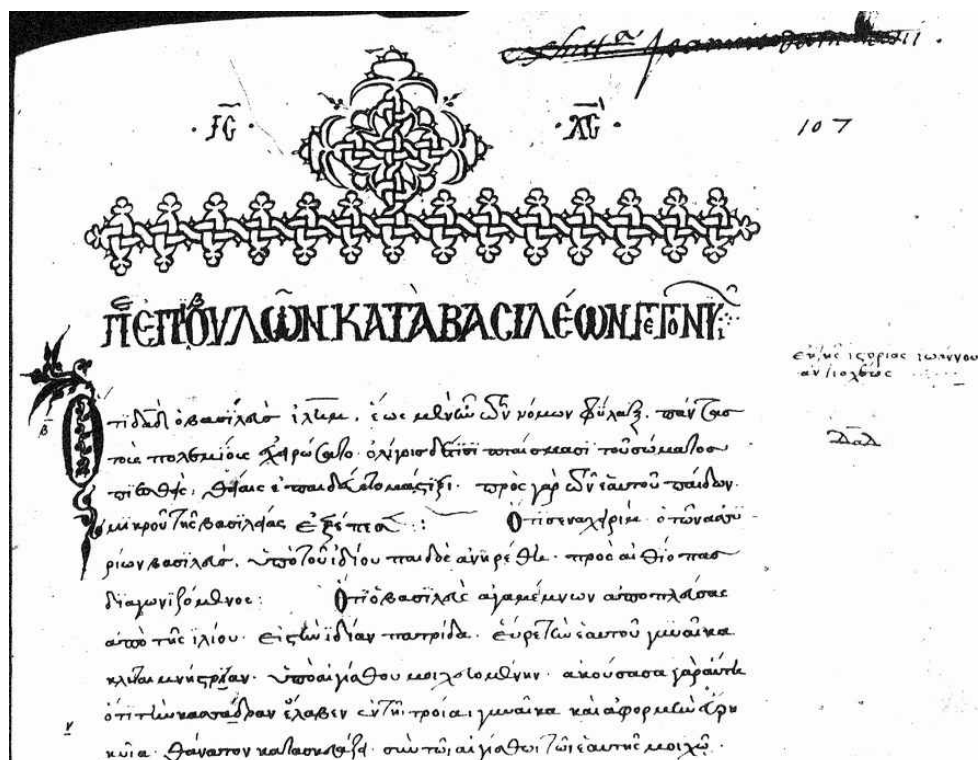 ΙС ΧС
107
ΠΕΡΙ ΕΠΙΒΟΥΛῶΝ ΚΑΤᾺ ΒΑСΙΛΈΩΝ ΓΕΓΟΝΥΙ
Ὅτι δαδ ὁ βασιλεὺς ἕως μὲν τῶν νόμων φύλαξ, πάντας
τοὺς πολεμίους ἐχειρώσατο· ὀλίγοις δέ τισι πταίσμασι τοῦ σώματος
ἐπαιδεύετο μάστιξι· πρὸς γὰρ τῶν ἑαυτοῦ παίδων
μικροῦ τῆς βασιλείας ἐξέπεσεν: Ὅτι σεναχηρὶμ ὁ τῶν ἀσσυ
ρίων βασιλεὺς, ὑπὸ τοῦ ἰδίου παιδὸς ἀνῃρέθη πρὸς αἰθίοπας
διαγωνιζόμενος: Ὅτι ὁ βασιλεὺς ἀγαμέμνων ἀποπλεύσας
ἀπὸ τῆς ἰλίου εἰς τὴν ἰδίαν πατρίδα εὗρε τὴν ἑαυτοῦ γυναῖκα
κλυταιμνήστραν ὑπὸ αἰγίσθου μοιχευομένην· ἀκούσασα γὰρ αὕτη
ὅτι τὴν κασάνδραν ἔλαβεν ἐν τῇ τροίᾳ γυναῖκα καὶ ἀφορμὴν εὑρη
κυῖα θάνατον κατασκευάζει σὺν τῷ αἰγίσθῳ τῷ ἑαυτῆς μοιχῷ·
ἐκ τῆς ἱστορίας ἰωάννου
ἀντιοχέως
δαδ